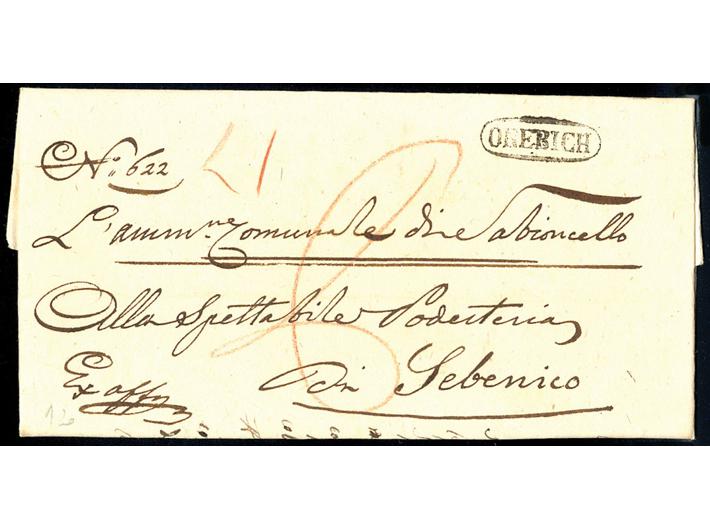 OREBICH
N.o 622
L'amm.ne Comunale di Sabioncello
Alla Spettabile Podesteria
di Sebenico
Ex offo